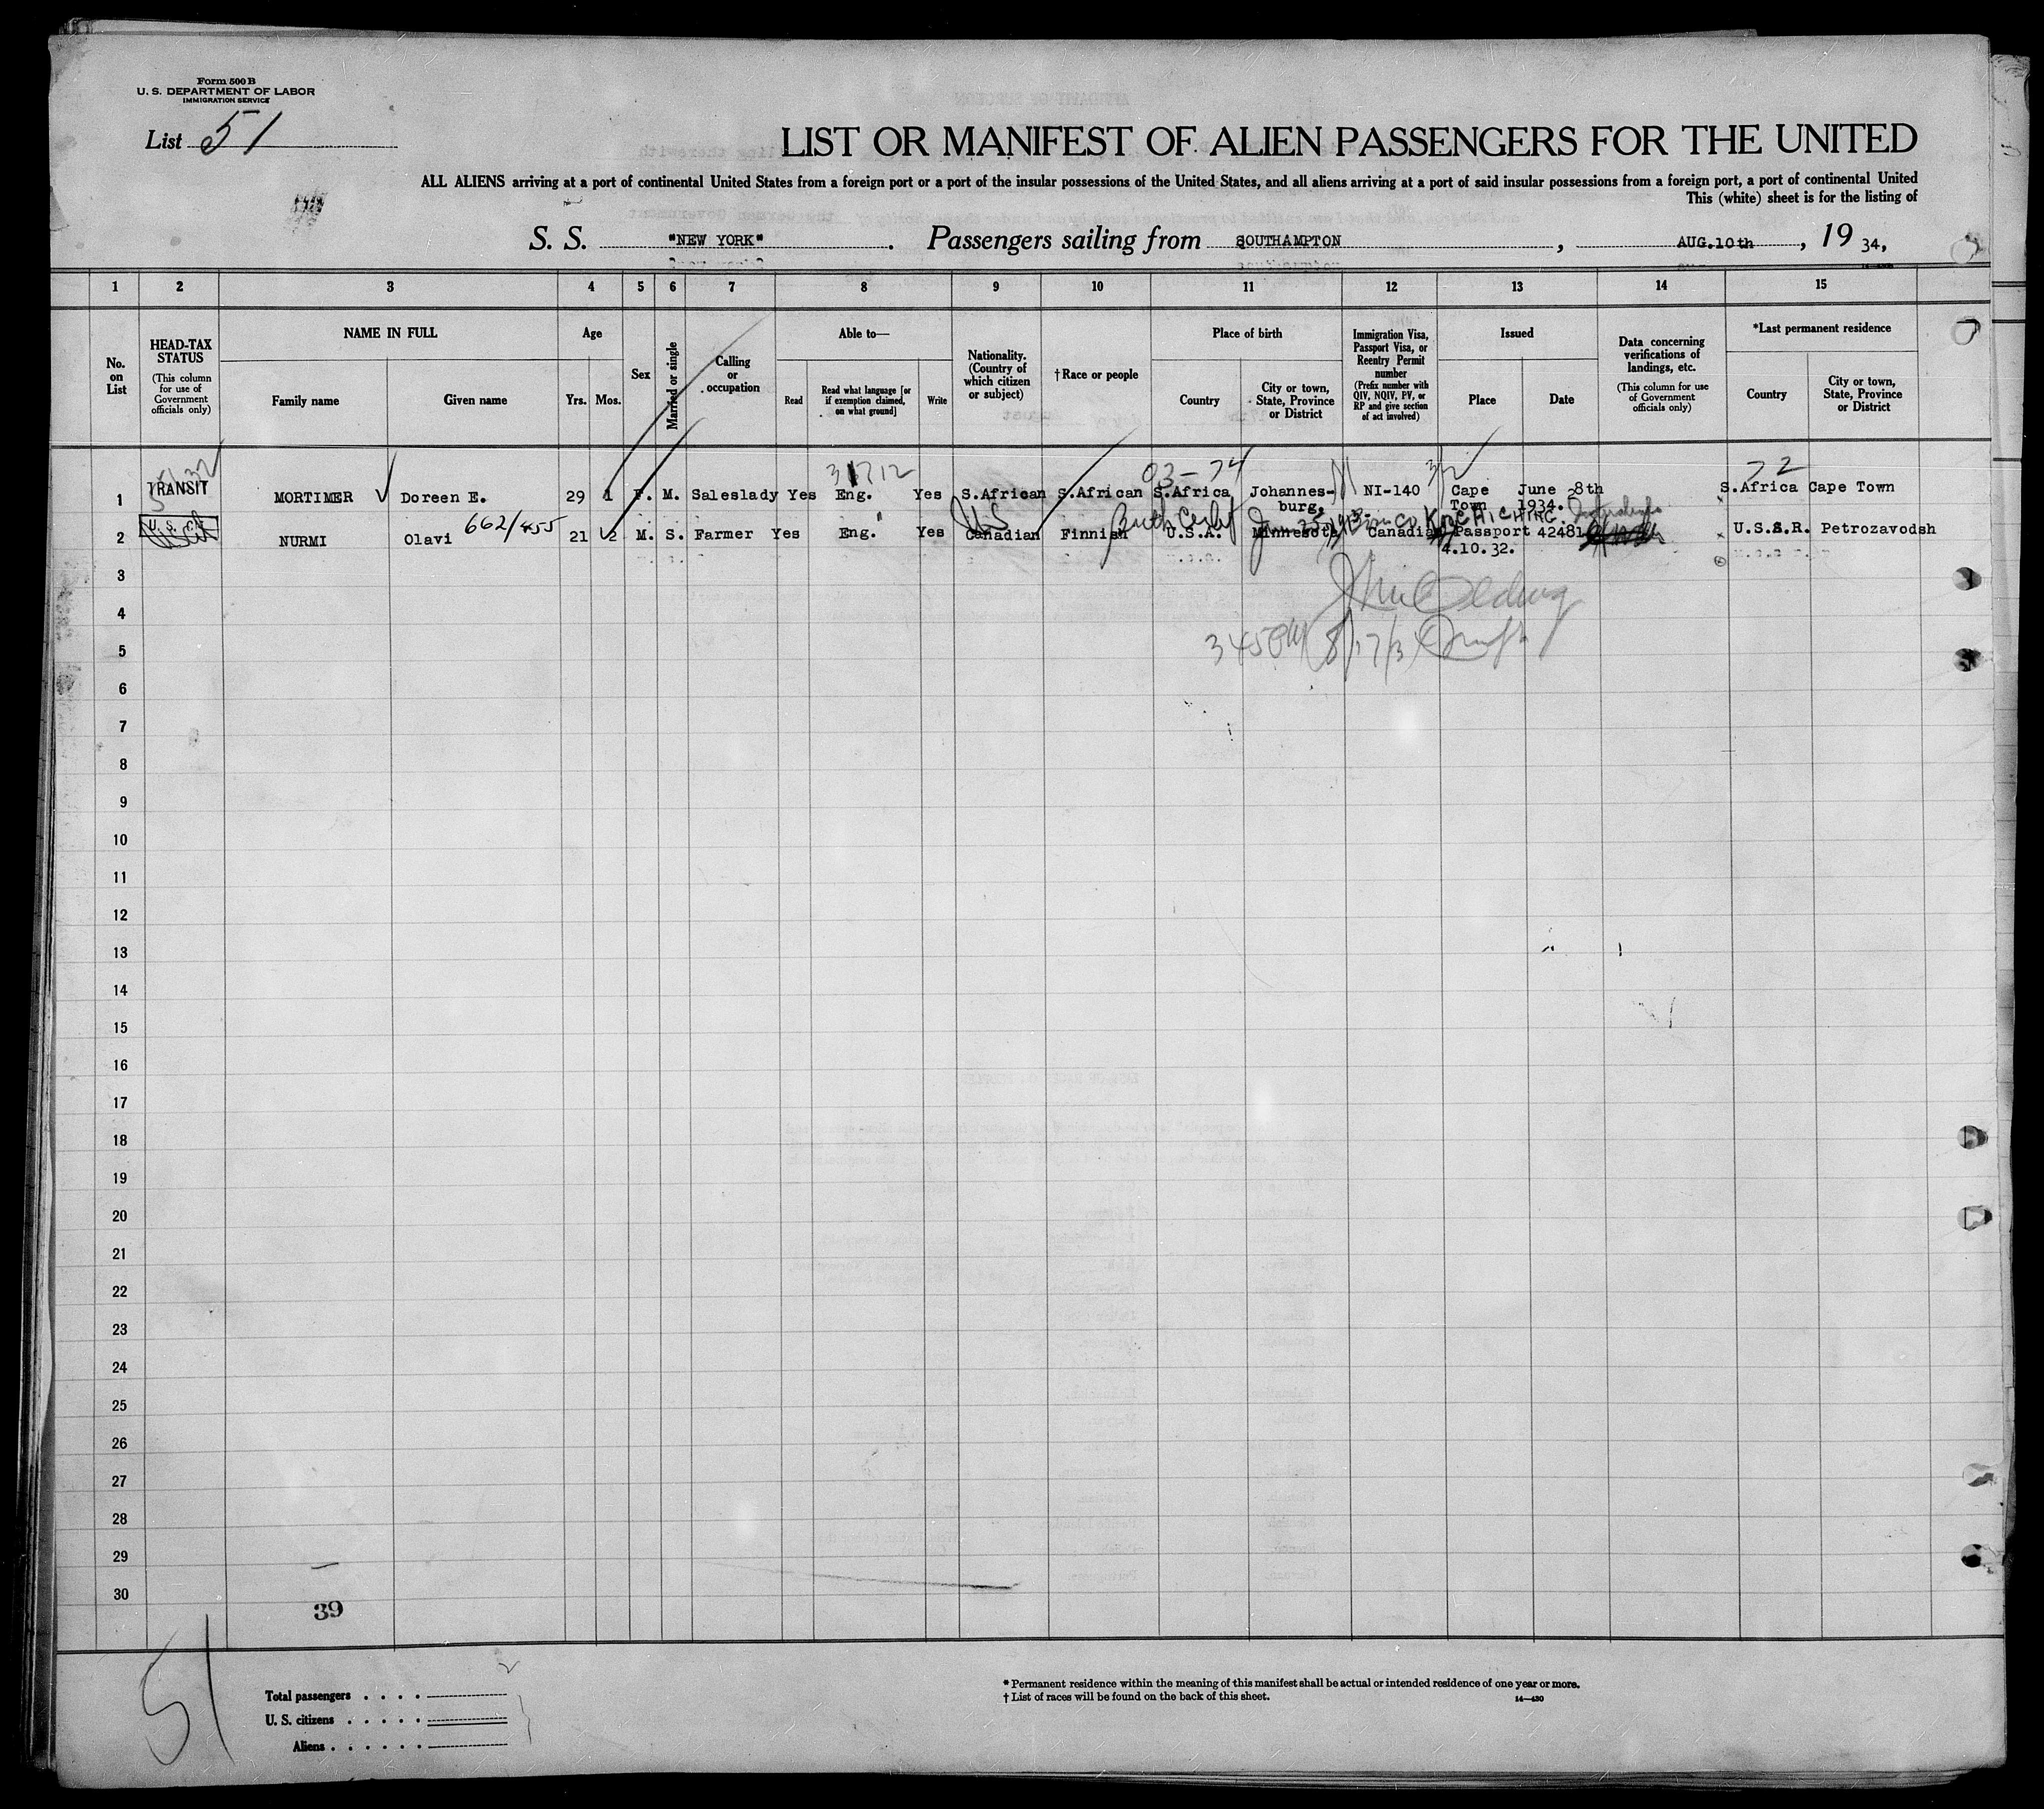 Form 500 B
U. S. DEPARTMENT OF LABOR
IMMIGRATION SERVICE
List 51
LIST OR MANIFEST OF ALIEN PASSENGERS FOR THE UNITED
ALL ALIENS arriving at a port of continental United States from a foreign port or a port of the insular possessions of the United States, and all aliens arriving at a port of said insular possessions from a foreign port, a port of continental United
This (white) sheet is for the listing of
S. S. "NEW YORK". Passengers sailing from SOUTHAMPTON, AUG.10th, 19 34,
1 2 3 4 5 6 7 8 9 10 11 12 13 14 15
No. on List
HEAD-TAX STATUS
(This column for use of Government officials only)
NAME IN FULL
Family name Given name
Age
Yrs. Mos.
Sex
Married or single
Calling or occupation
Able to—
Read
Read what language [or if exemption claimed, on what ground]
Write
Nationality. (Country of which citizen or subject)
†Race or people
Place of birth
Country
City or town, State, Province or District
Immigration Visa, Passport Visa, or Reentry Permit number
(Prefix number with QIV, NQIV, PV, or RP and give section of act involved)
Issued
Place Date
Data concerning verifications of landings, etc.
(This column for use of Government officials only)
*Last permanent residence
Country
City or town, State, Province or District
31712 03-74 72
1 TRANSIT MORTIMER Doreen E. 29 1 F. M. Saleslady Yes Eng. Yes S.African S.African S.Africa Johannes- NI-140 Cape June 8th S.Africa Cape Town
burg. Town 1934.
662/455 US Birth Certif Jan 25-1913 KOOCHICHING
2 U. S. Cit NURMI Olavi 21 2 M. S. Farmer Yes Eng. Yes Canadian Finnish U.S.A. Minnesota Canadian Passport 42481 U.S.S.R. Petrozavodsh
4.10.32.
3
4
5 8/17/3
6
7
8
9
10
11
12
13
14
15
16
17
18
19
20
21
22
23
24
25
26
27
28
29
30
39
51
Total passengers
U. S. citizens
Aliens
* Permanent residence within the meaning of this manifest shall be actual or intended residence of one year or more.
† List of races will be found on the back of this sheet.
14—430